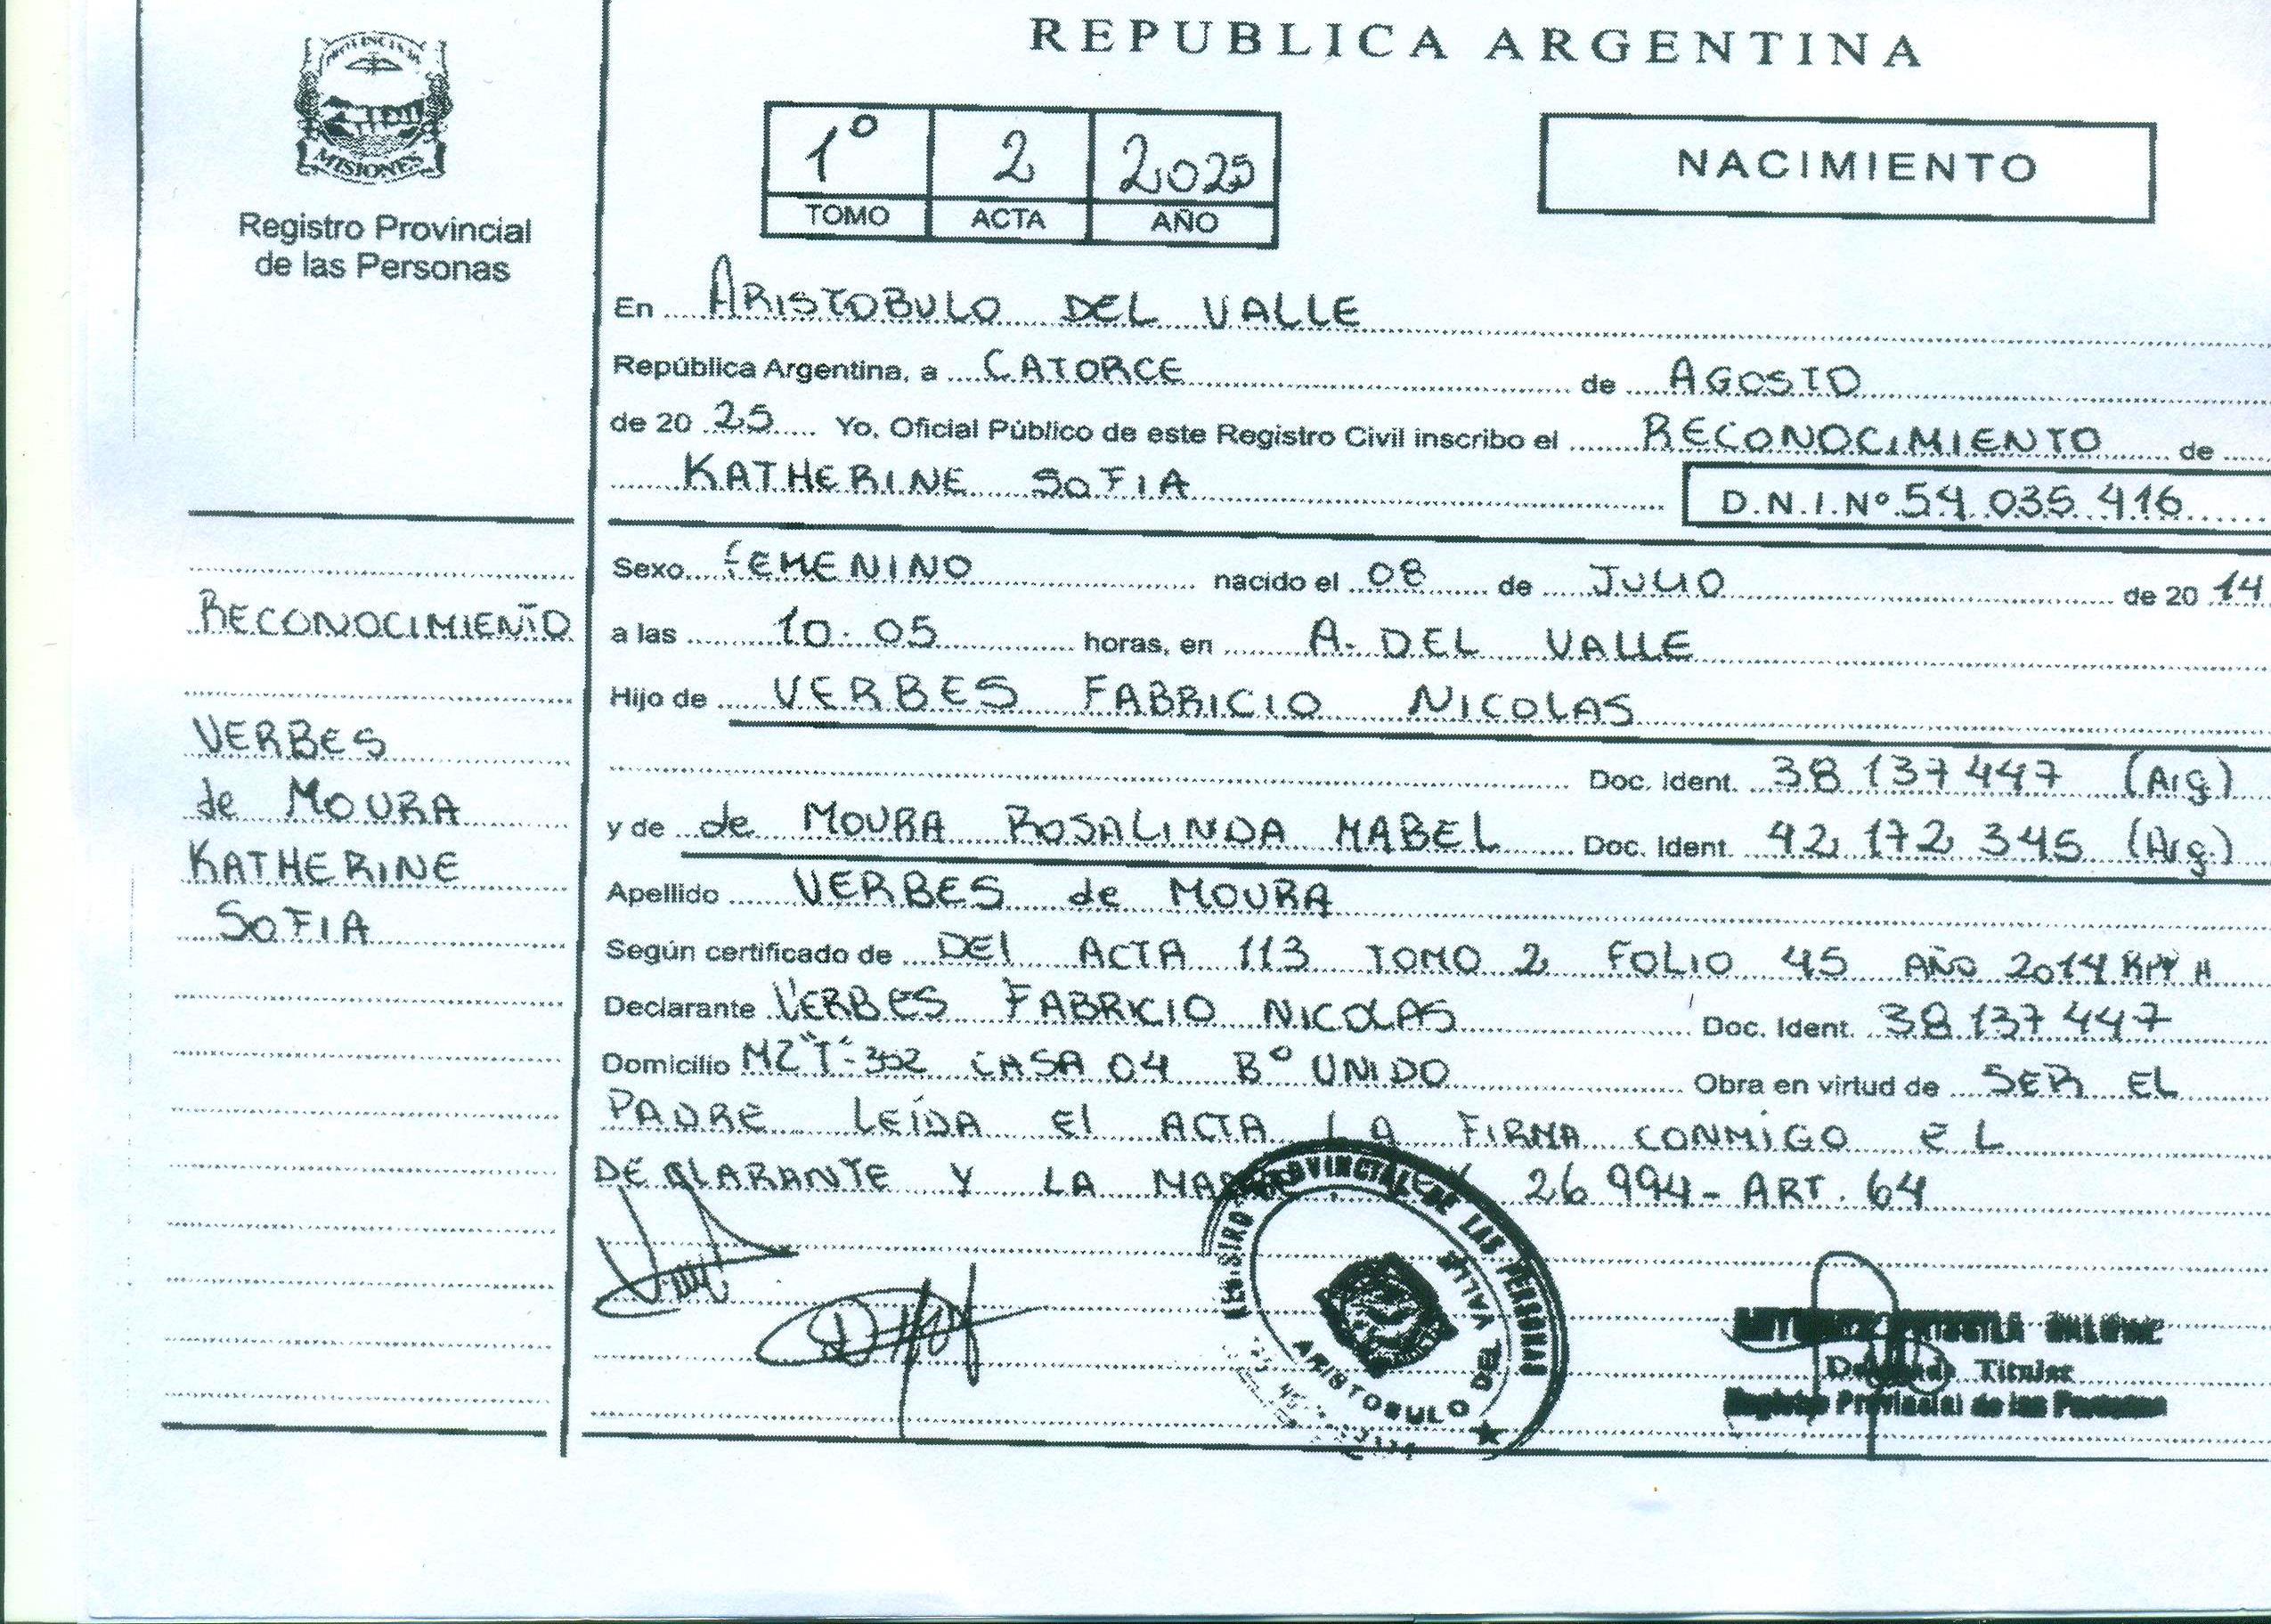 REPUBLICA ARGENTINA
PROVINCIA DE
MISIONES
Registro Provincial
de las Personas
1º 2 2025
TOMO ACTA AÑO
NACIMIENTO
En ARISTOBULO DEL VALLE
República Argentina, a CATORCE de AGOSTO
de 20 25 Yo, Oficial Público de este Registro Civil inscribo el RECONOCIMIENTO de
KATHERINE SOFIA D.N.I.Nº 54 035 416
Sexo FEMENINO nacido el 08 de JULIO de 20 14
a las 10.05 horas, en A. DEL VALLE
Hijo de VERBES FABRICIO NICOLAS
Doc. Ident. 38 137 447 (Arg)
y de de MOURA ROSALINDA MABEL Doc. Ident. 42 172 345 (Arg.)
Apellido VERBES de MOURA
Según certificado de DEl ACTA 113 TOMO 2 FOLIO 45 AÑO 2014
Declarante VERBES FABRICIO NICOLAS Doc. Ident. 38 137 447
Domicilio MZ "T"-302 CASA 04 Bº UNIDO Obra en virtud de SER EL
PADRE LEÍDA El ACTA LA FIRMA CONMIGO EL
DECLARANTE Y LA 26 994 - ART. 64
RECONOCIMIENTO
VERBES
de MOURA
KATHERINE
SOFIA
REGISTRO PROVINCIAL DE LAS PERSONAS
ARISTOBULO DEL VALLE
Titular
Registro Provincial de las Personas